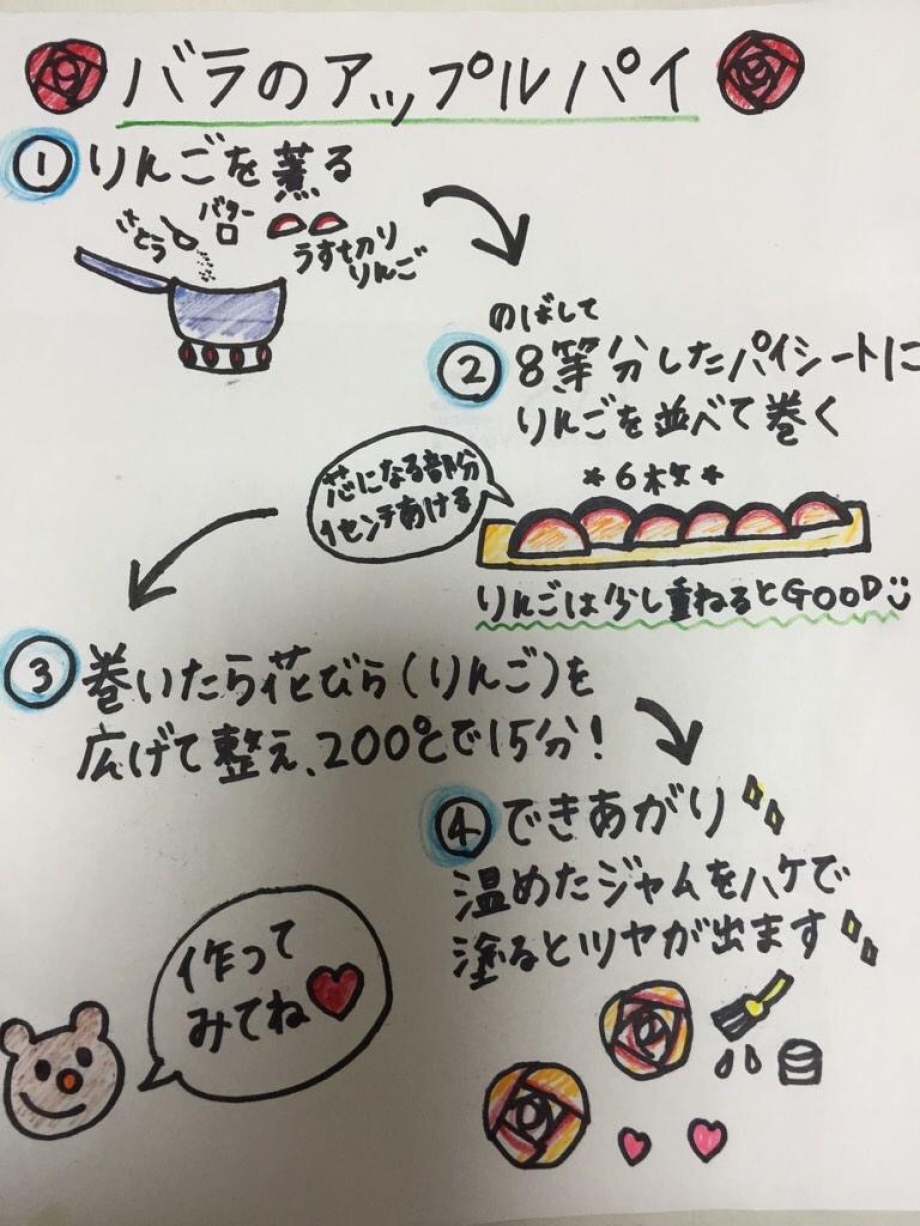 バラのアップルパイ
① りんごを煮る
さとう
バター
うす切り
りんご
のばして
② 8等分したパイシートに
りんごを並べて巻く
芯になる部分
1センチあける
*6枚*
りんごは少し重ねるとGOOD
③ 巻いたら花びら(りんご)を
広げて整え、200℃で15分!
④ できあがり
温めたジャムをハケで
塗るとツヤが出ます
作って
みてね